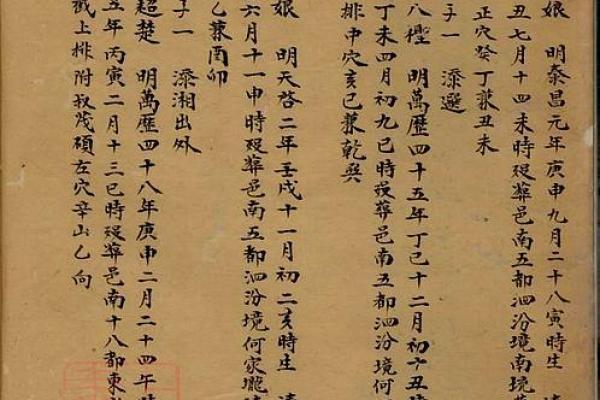 娘 明泰昌元年庚申九月二十八寅時生
丑七月十四未時殁葬邑南五都泗汾境南境
正穴癸丁兼丑未
子一 添選
八 明萬歷四十五年丁巳十二月初 丑
丁未四月初九巳時殁葬邑南五都泗汾境何
排中穴亥巳兼乾巽
娘 明天啓二年壬戌十一月初二亥時生
六月十一申時殁葬邑南五都泗汾境何家壠
乙兼酉卯
子一 添湘出外
超楚 明萬歷四十八年庚申二月二十四午
五年丙寅二月十三巳時殁葬邑南十八都東
戳上排附叔茂碩左穴辛山乙向